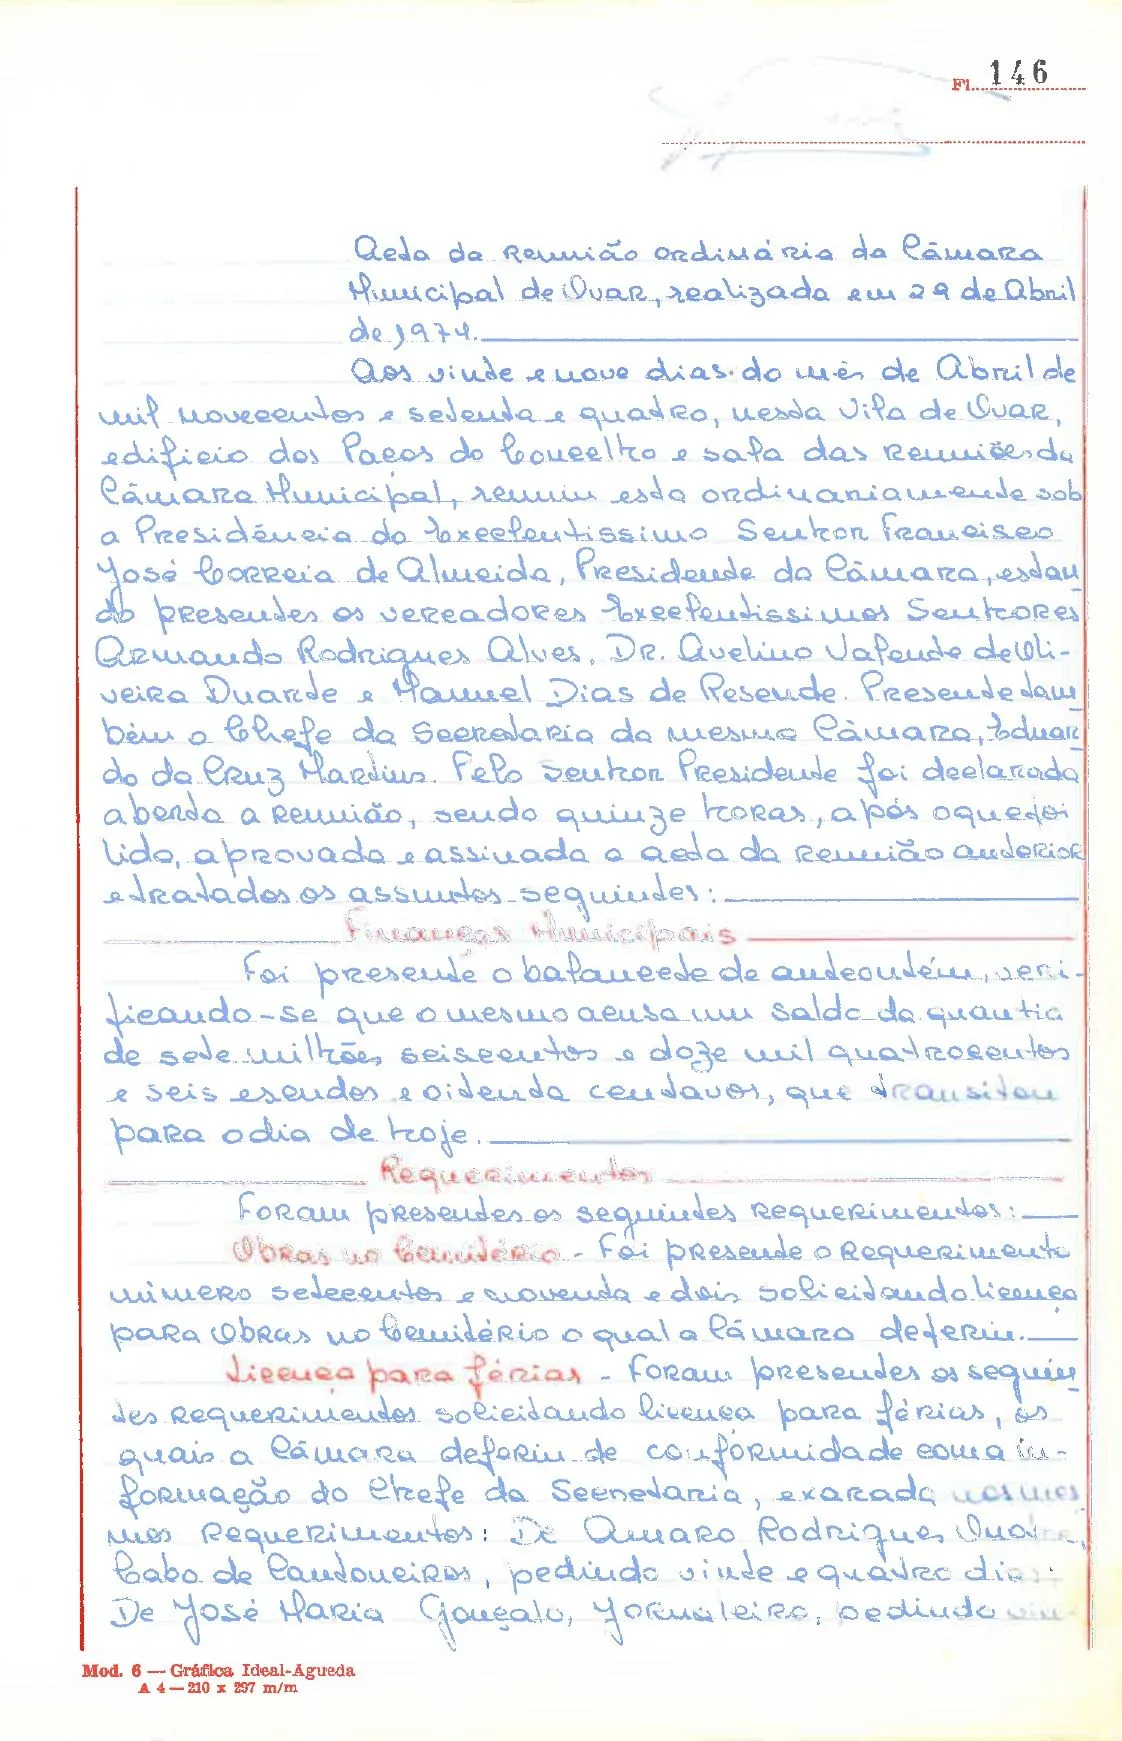 Fl. 146
Acta da reunião ordinária da Câmara
Municipal de Ovar, realizada em 29 de Abril
de 1974.
Aos vinte e nove dias do mês de Abril de
mil novecentos e setenta e quatro, nesta Vila de Ovar,
edificio dos Paços do Concelho e sala das reuniões da
Câmara Municipal, reuniu esta ordinariamente sob
a Presidência do Excelentissimo Senhor Francisco
José Correia de Almeida, Presidente da Câmara, estan
do presentes os vereadores Excelentissimos Senhores
Armando Rodrigues Alves, Dr. Avelino Valente de Oli-
veira Duarte e Manuel Dias de Resende. Presente tam
bém o Chefe da Secretaria da mesma Câmara, Eduar
do da Cruz Martins. Pelo Senhor Presidente foi declarada
aberta a reunião, sendo quinze horas, após o que foi
lida, aprovada e assinada a acta da reunião anterior
e tratados os assuntos seguintes:
Finanças Municipais
Foi presente o balancete de anteontém, veri-
ficando-se que o mesmo acusa um saldo da quantia
de sete milhões, seiscentos e doze mil quatrocentos
e seis escudos e oitenta centavos, que transitou
para o dia de hoje.
Requerimentos
Foram presentes os seguintes requerimentos:
Obras no Cemitério - Foi presente o requerimento
número setecentos e noventa e dois solicitando licença
para obras no Cemitério o qual a Câmara deferiu.
Licença para férias - Foram presentes os seguin
tes requerimentos solicitando licença para férias, os
quais a Câmara deferiu de conformidade com a in-
formação do Chefe da Secretaria, exarada nos mes
mos requerimentos: De Amaro Rodrigues
Cabo de Cantoneiros, pedindo vinte e quatro dias
De José Maria Gonçalo, Jornaleiro, pedindo vin
Mod. 6 — Gráfica Ideal-Agueda
A 4 — 210 x 297 m/m